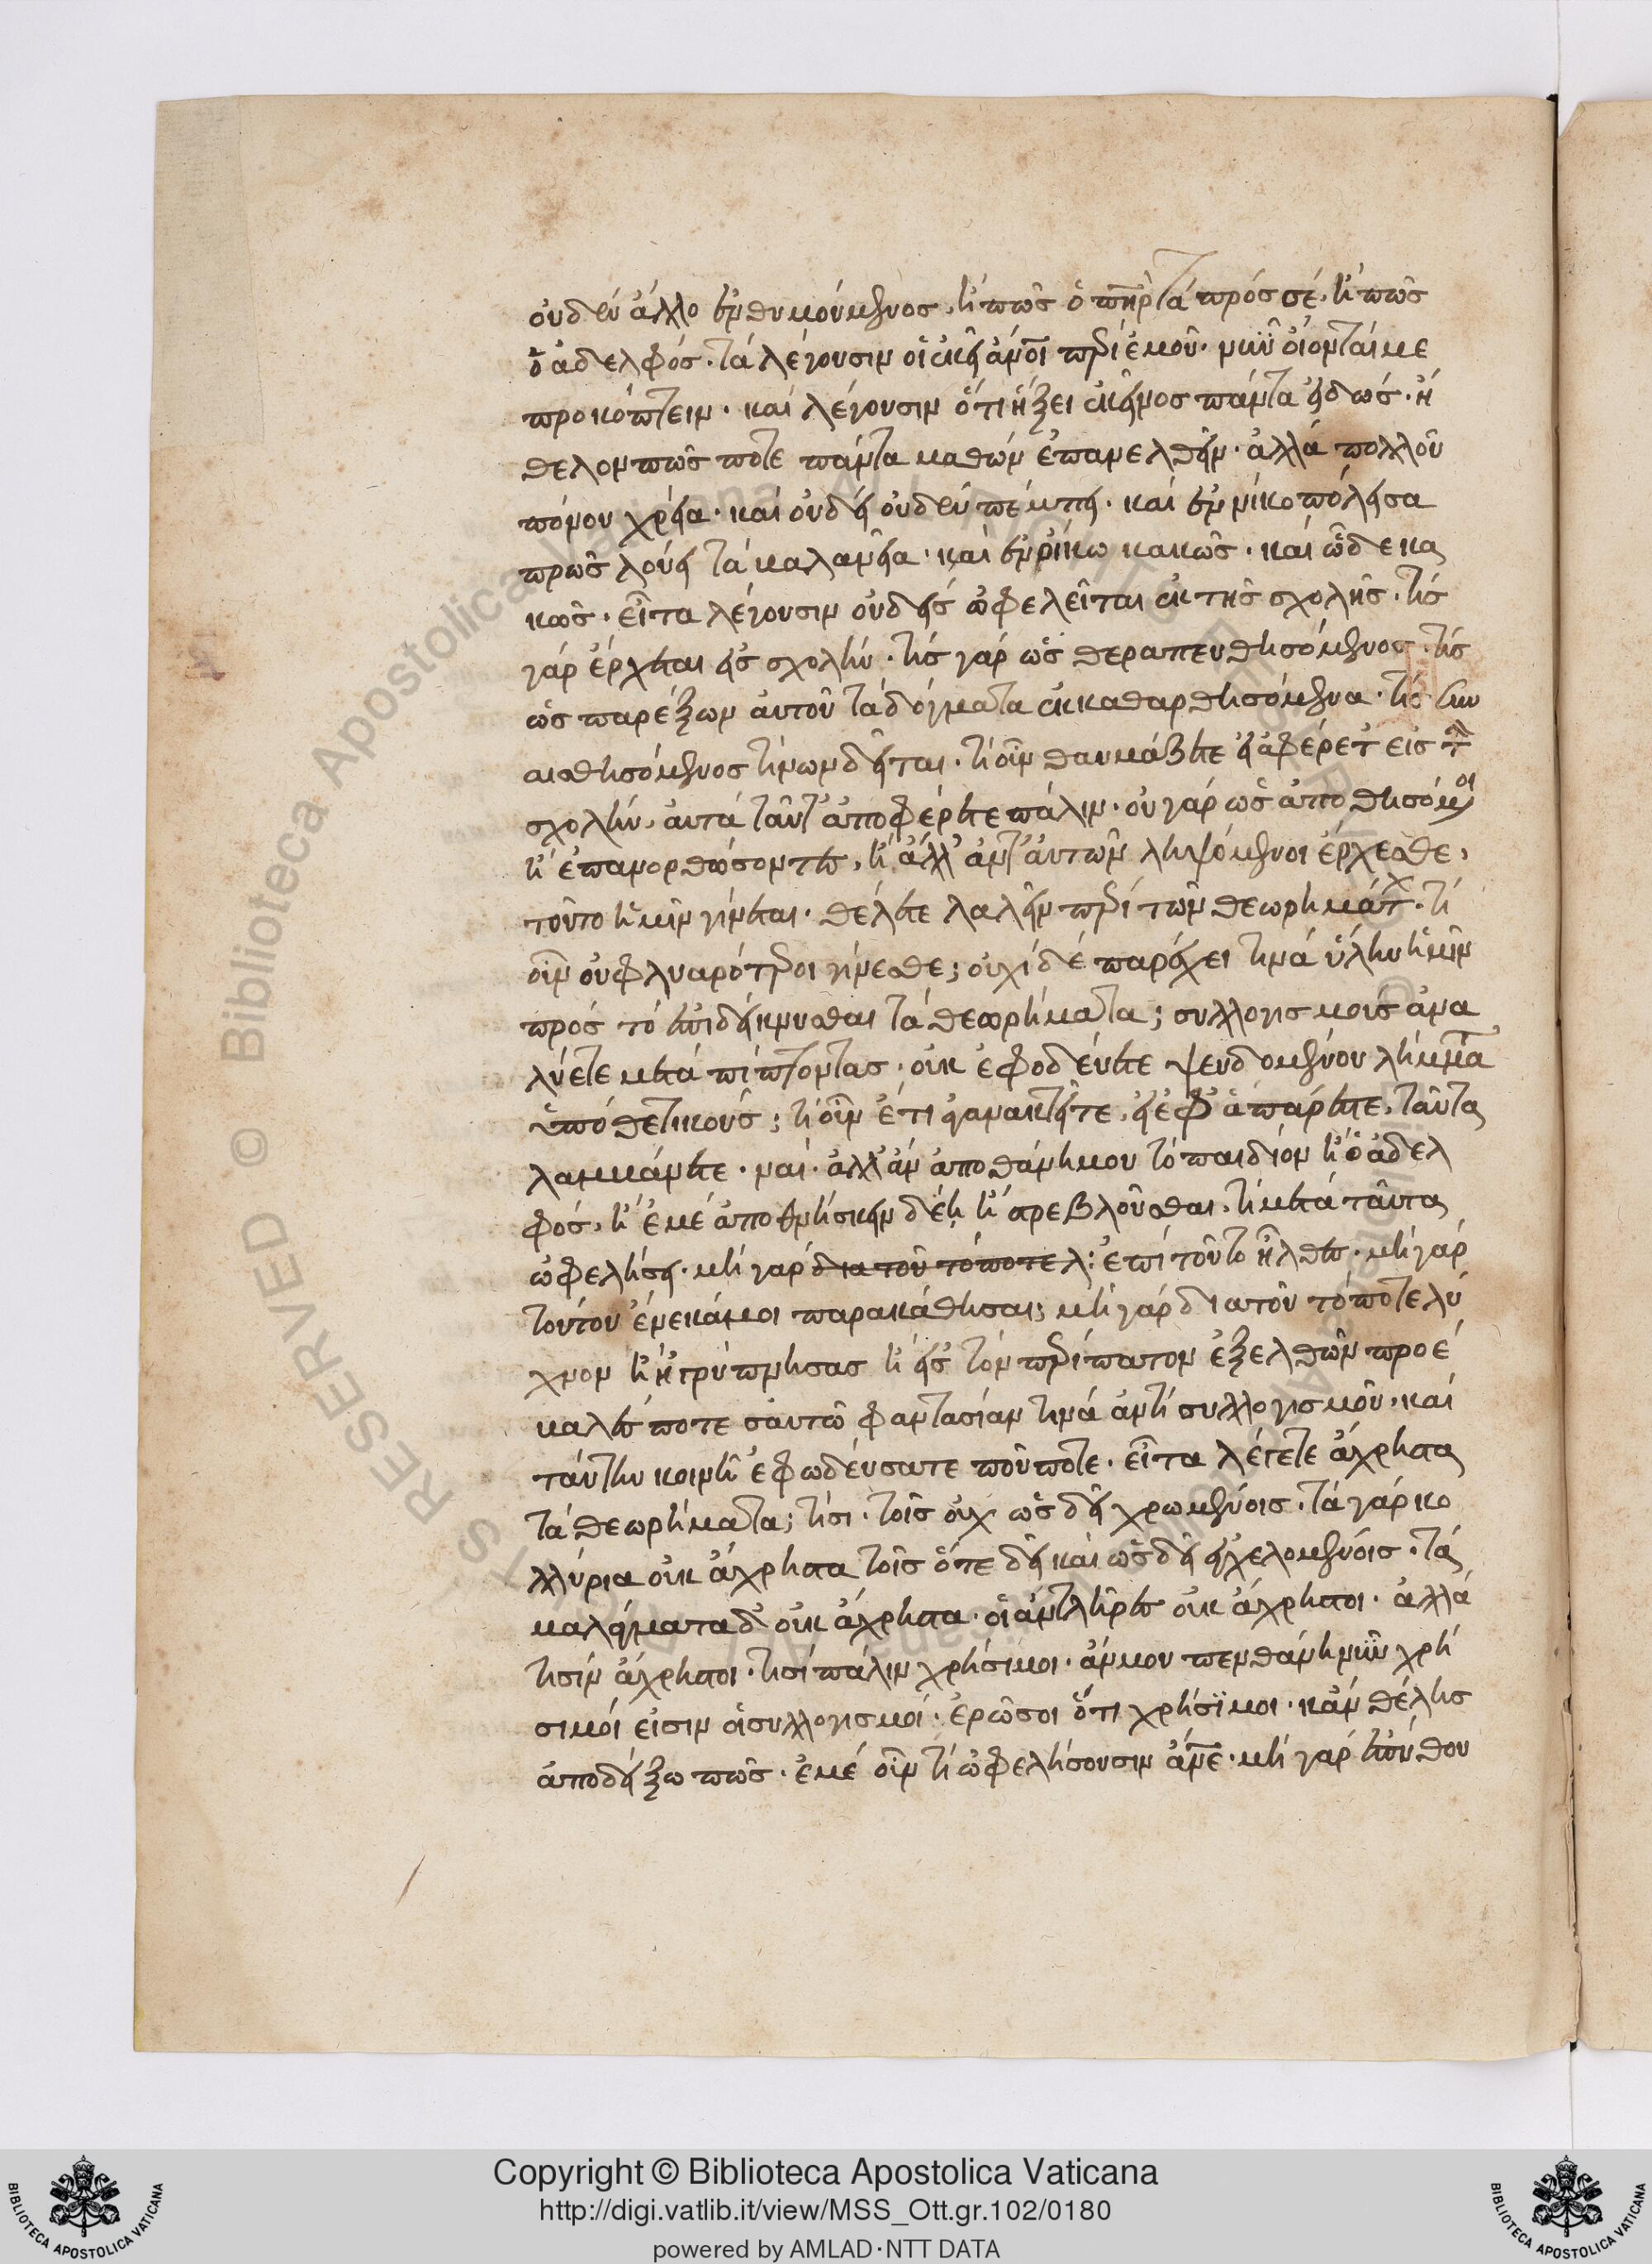 οὐδὲν ἄλλο ἐνθυμούμενος, ἢ πῶς ὁ πατὴρ τὰ πρός σέ, ἢ πῶς
ὁ ἀδελφός. τὰ λέγουσιν οἱ ἐκεῖ ἄνοι περὶ ἐμοῦ. νῦν οἴονταί με
προκόπτειν. καὶ λέγουσιν ὅτι ἥξει ἐκεῖνος πάντα εἰδώς. ἤ
θελον πῶς ποτε πάντα μαθών ἐπανελθεῖν. ἀλλὰ πολλοῦ
πόνου χρεία. καὶ οὐδεὶ οὐδὲν πέμπει. καὶ ἐν νικοπόλει σα
πρῶς λούει τὰ βαλανεῖα. καὶ ἐν οἴκω κακῶς. καὶ ὧδε κα
κῶς. εἶτα λέγουσιν οὐδεὶς ὠφελεῖται ἐκ τῆς σχολῆς. τίς
γὰρ ἔρχεται εἰς σχολήν. τίς γὰρ ὡς θεραπευθησόμενος. τίς
ὡς παρέξων αὐτοῦ τὰ δόγματα ἐκκαθαρθησόμενα. τίς συν
αισθησόμενος τίνων δεῖται. τί οὖν θαυμάζετε εἰ ἃ φέρετ εἰς τὴν
σχολήν, αὐτὰ ταῦτ ἀποφέρετε πάλιν. οὐ γὰρ ὡς ἀποθησόμενοι
ἢ ἐπανορθώσοντες, ἢ ἄλλ ἀντ αὐτῶν ληψόμενοι ἔρχεσθε,
τοῦτο ἡμῖν γίνεται. θέλετε λαλεῖν περὶ τῶν θεωρημάτ. τί
οὖν οὐ φλυαρότεροι γίνεσθε; οὐχὶ δὲ παρέχει τινὰ ὕλην ἡμῖν
πρὸς τὸ ἐπιδείκνυσθαι τὰ θεωρήματα; συλλογισμοὺς ἀνα
λύετε μεταπίπτοντας. οὐκ ἐφοδεύετε ψευδομένου λήμματα
ὑποθετικούς; τί οὖν ἔτι ἀγανακτεῖτε, εἰ ἐφ ἃ πάρεστε, ταῦτα
λαμβάνετε. ναί. ἀλλ ἂν ἀποθάνη μου τὸ παιδίον ἢ ὁ ἀδελ
φός, ἢ ἐμὲ ἀποθνήσκειν δέη ἢ στρεβλοῦσθαι, τί μετὰ ταῦτα
ὠφελήσει. μὴ γὰρ δια τοῦ τόποτελ: ἐπὶ τοῦτο ἦλθες. μὴ γὰρ
τούτου ἕνεκά μοι παρακάθησαι; μὴ γὰρ διατοῦ τό ποτε λύ
χνον ἢ ἠγρύπνησας ἢ εἰς τὸν περίπατον ἐξελθὼν προέ
βαλές ποτε σαυτῶ φαντασίαν τινὰ ἀντὶ συλλογισμοῦ. καὶ
ταύτην κοινῆ ἐφωδεύσατε ποῦ ποτε. εἶτα λέγετε ἄχρηστα
τὰ θεωρήματα; τίσι. τοῖς οὐχ ὡς δεῖ χρωμένοις. τὰ γὰρ κο
λλύρια οὐκ ἄχρηστα τοῖς ὅτε δεῖ καὶ ὡς δεῖ ἐγχελομένοις. τὰ
μαλάγματα δ οὐκ ἄχρηστα. οἱ ἀντλῆρες οὐκ ἄχρηστοι. ἀλλὰ
τισὶν ἄχρηστοι. τισὶ πάλιν χρήσιμοι. ἄν μου πενθάνη νῦν χρή
σιμοί εἰσιν ἁσυλλογισμοί. ἐρῶ σοι ὅτι χρήσιμοι. κἂν θέλης
ἀποδείξω πῶς. ἐμὲ οὖν τί ὠφελήσουσιν ἄνε. μὴ γὰρ ἐπύθου